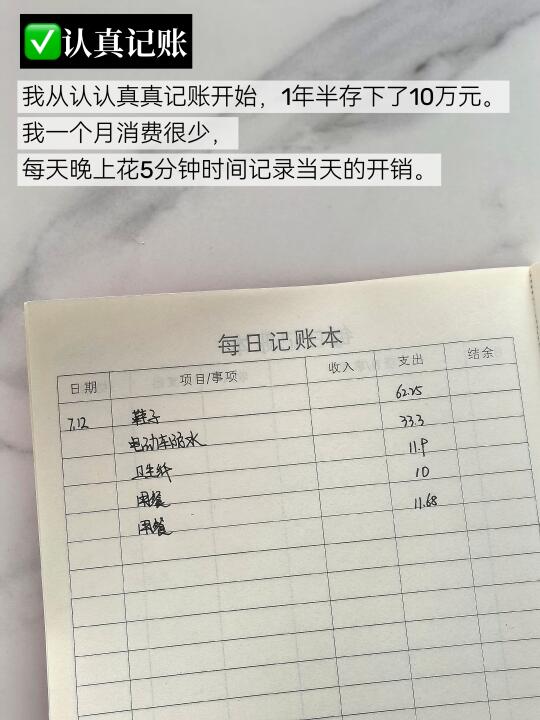 ✅认真记账
我从认认真真记账开始，1年半存下了10万元。
我一个月消费很少，
每天晚上花5分钟时间记录当天的开销。
每日记账本
日期 项目/事项 收入 支出 结余
7.12 鞋子 62.25
电动车防水 33.3
卫生纸 11.9
用餐 10
用餐 11.68